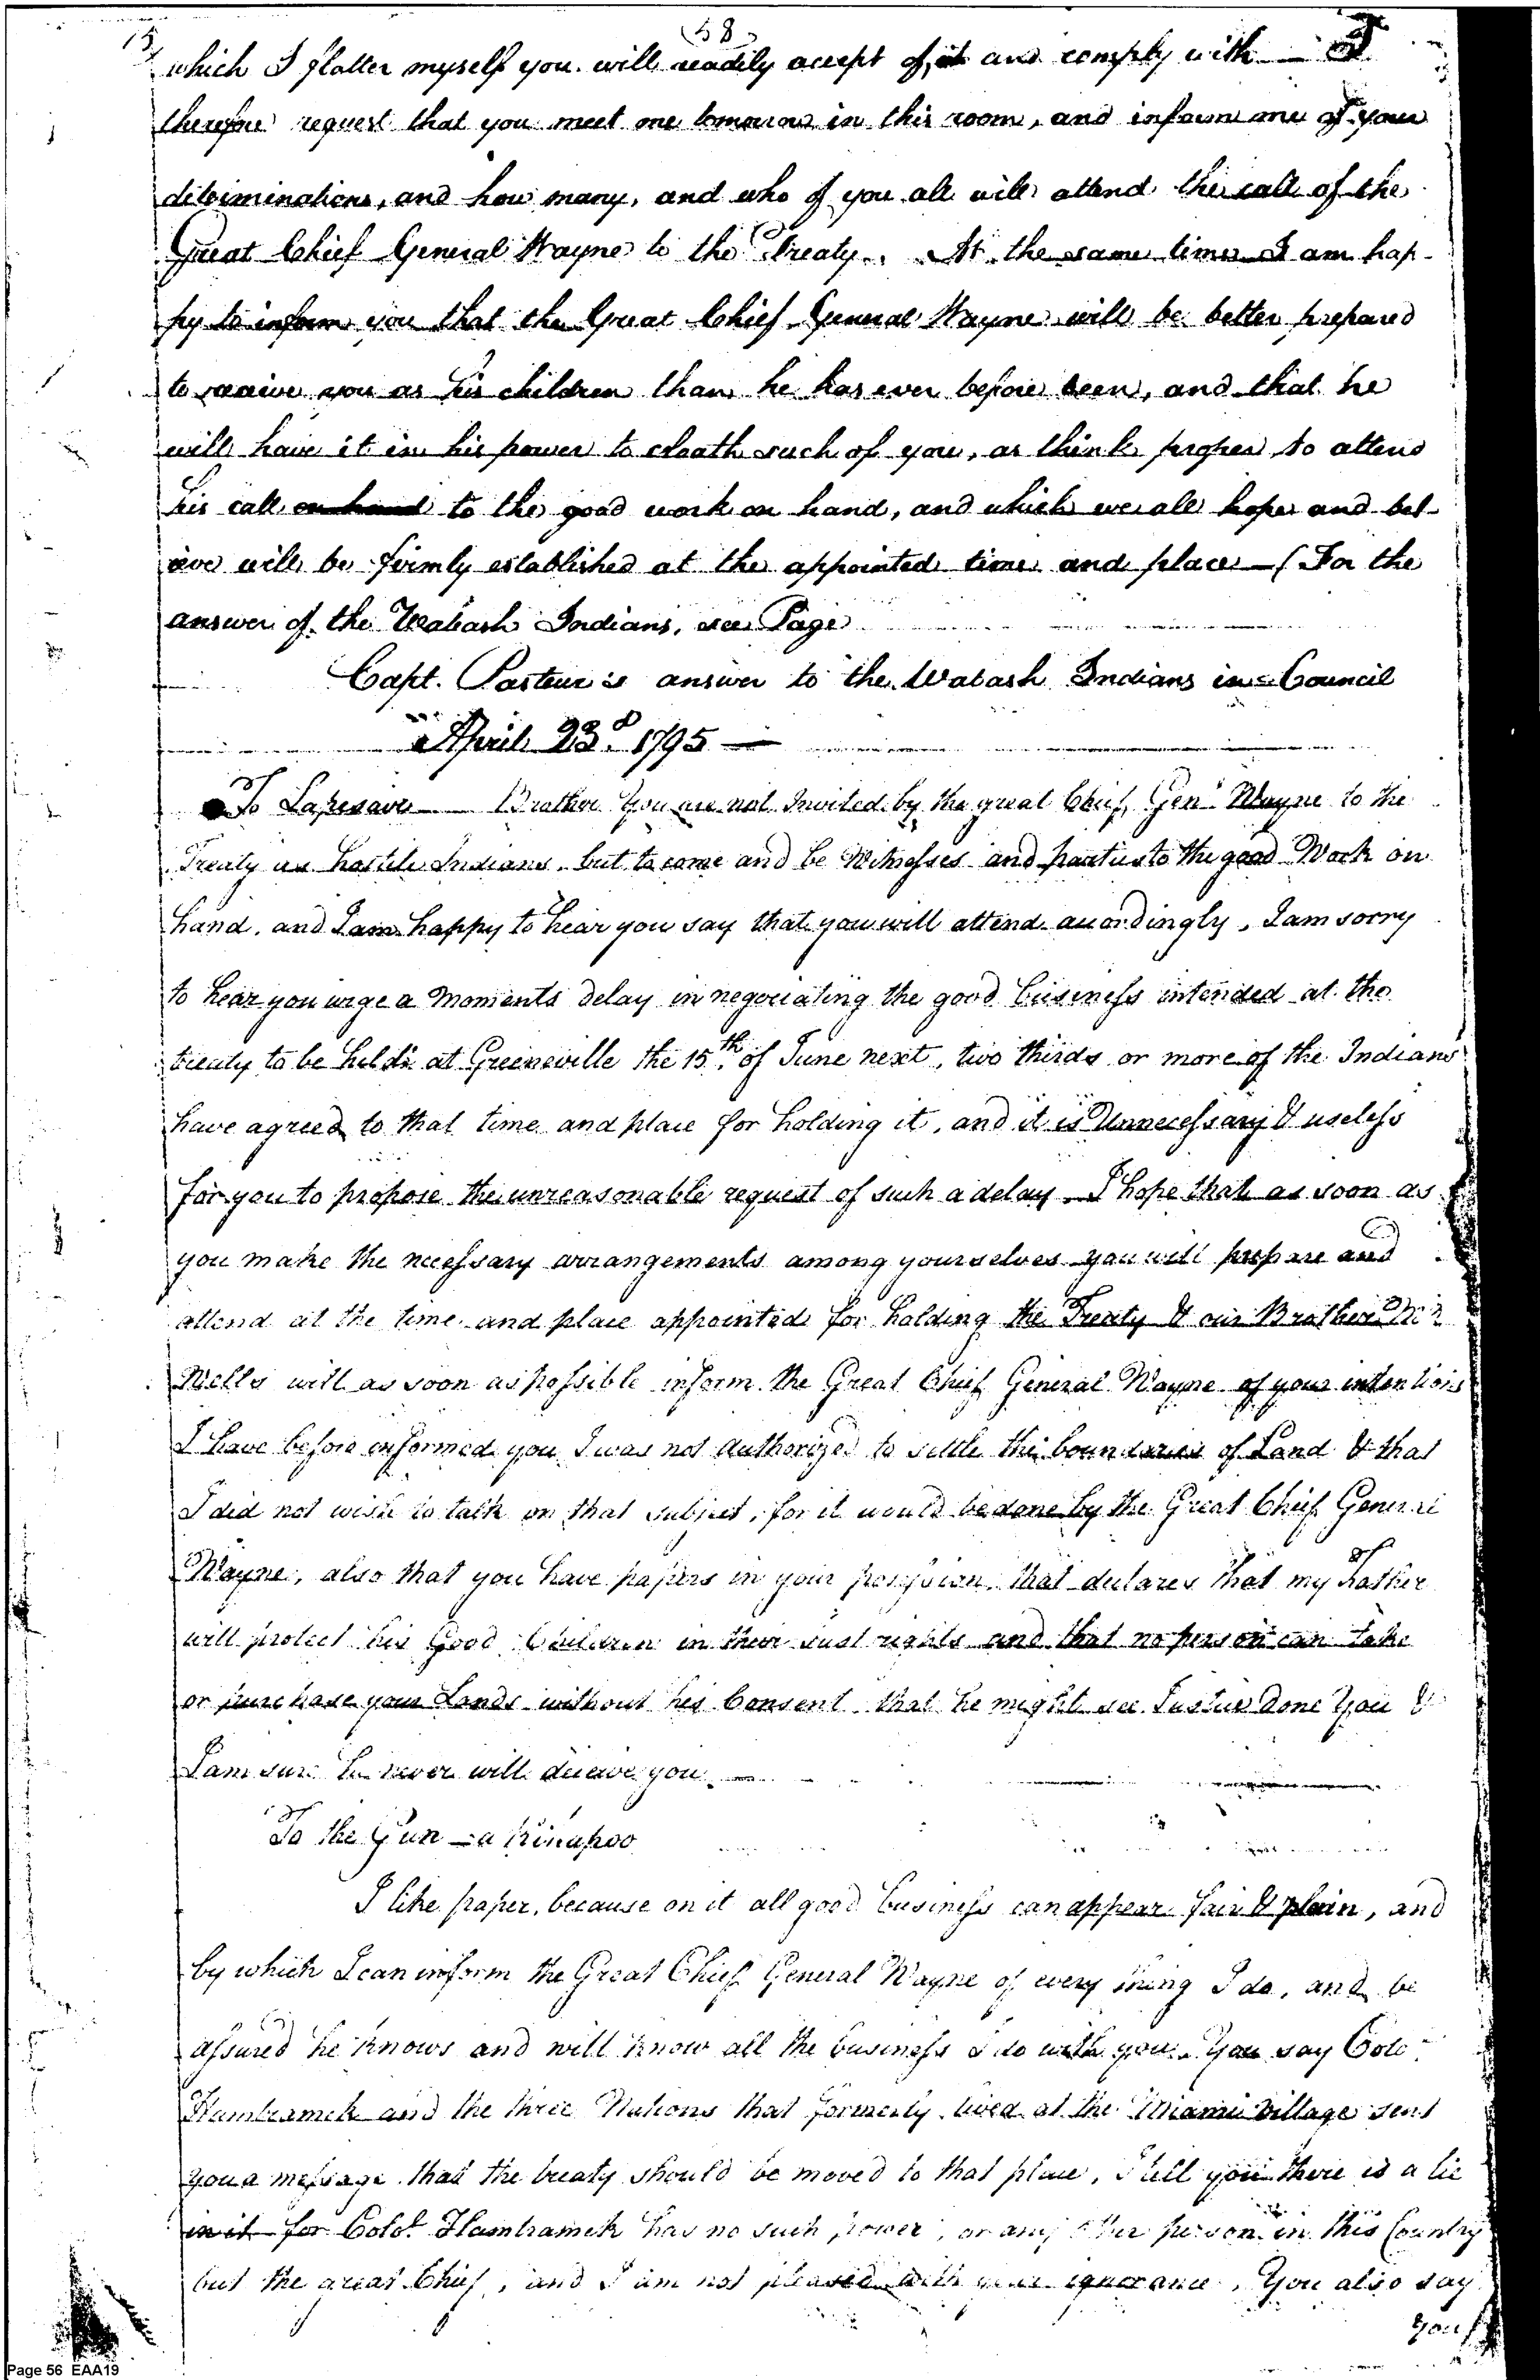 (58)
which I flatter myself you will readily accept of, and comply with — I
therefore request that you meet me tomorrow in this room, and inform me of your
determinations, and how many, and who of you all will attend the call of the
Great Chief General Wayne to the Treaty. At the same time I am hap-
py to inform you that the Great Chief General Wayne will be better prepared
to receive you as his children than he has ever before been, and that he
will have it in his power to cloath such of you, as think proper to attend
his call on hand to the good work on hand, and which we all hope and bel-
ieve will be firmly established at the appointed time and place — (For the
answer of the Wabash Indians, see Page
Capt. Pasteur's answer to the Wabash Indians in Council
April 23d. 1795 —
To Lapesave — Brother You are not Invited by the great Chief, Genl Wayne to the
Treaty as hostile Indians, but to come and be Witnesses and parties to the good Work on
hand, and I am happy to hear you say that you will attend accordingly, I am sorry
to hear you urge a moments delay in negociating the good business intended at the
treaty to be held at Greeneville the 15th. of June next, two thirds or more of the Indians
have agreed to that time and place for holding it, and it is Unnecessary & useless
for you to propose the unreasonable request of such a delay. I hope that as soon as
you make the necessary arrangements among yourselves you will prepare and
attend at the time and place appointed for holding the Treaty & our Brother Mr
Wells will as soon as possible inform the Great Chief General Wayne of your intentions
I have before informed you I was not Authorized to settle the boundaries of Land & that
I did not wish to talk on that subject, for it would be done by the Great Chief General
Wayne, also that you have papers in your possession that declares that my Father
will protect his Good Children in their Just rights and that no person can take
or purchase your Lands without his Consent that he might see Justice done You &
I am sure he never will deceive you —
To the Gun — a Kikapoo
I like paper, because on it all good business can appear fair & plain, and
by which I can inform the Great Chief General Wayne of every thing I do, and be
assured he knows and will know all the business I do with you. You say Colo
Hamtramck and the three Nations that formerly lived at the Miami Village sent
you a message that the treaty should be moved to that place, I tell you there is a lie
in it for Colol Hamtramck has no such power, or any other person in this Country
but the great Chief, and I am not pleased with your ignorance, You also say
you
Page 56 EAA19